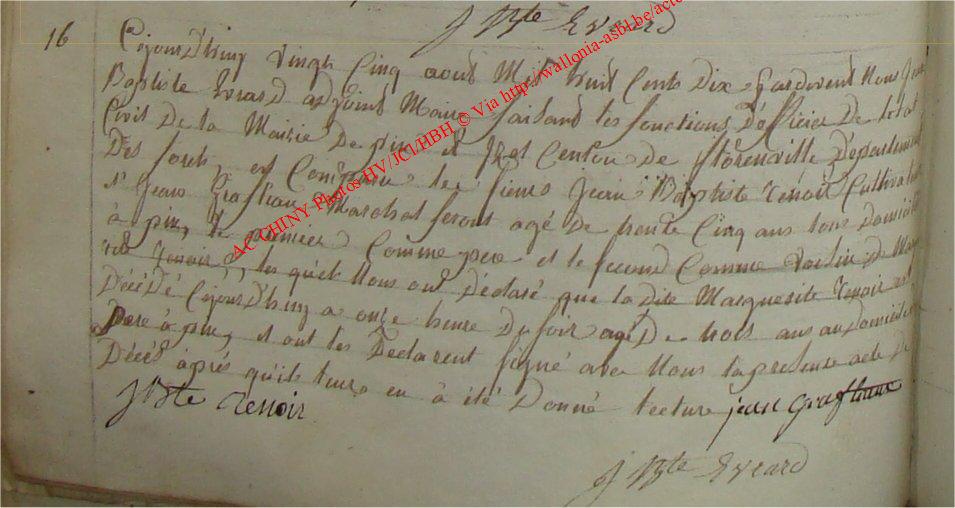 J Bte Evrard
16
Cejourd'huy vingt Cinq aout Mil huit Cents Dix pardevent Nous Jean
Baptiste Evrard adjoint Maire faisant les fonctions D'officier De letat
Civil De la Mairie De pin et Izel Canton De florenville Département
Des forets, est Comparu les sieurs Jean Baptiste Renoir Cultivateur
& Jean Marchal ferant agé De trente Cinq ans tous Domicilié
à pin, le premier Comme pere et le second Comme voisin De
Renoir, lesquels Nous ont Déclaré que la Dite Marguerite Renoir est
Décédé Cejourd'huy a onze heure Du soir agé De trois ans au Domicile
pere à pin, et ont les Declarent signé avec Nous la presente acte De
Décès après qu'ils leurs en à été Donné lecture jean grafteaux
J Bte Renoir
J Bte Evrard
AC CHINY Photos HV/JCl/HBH © Via http://wallonia-asbl.be/acte